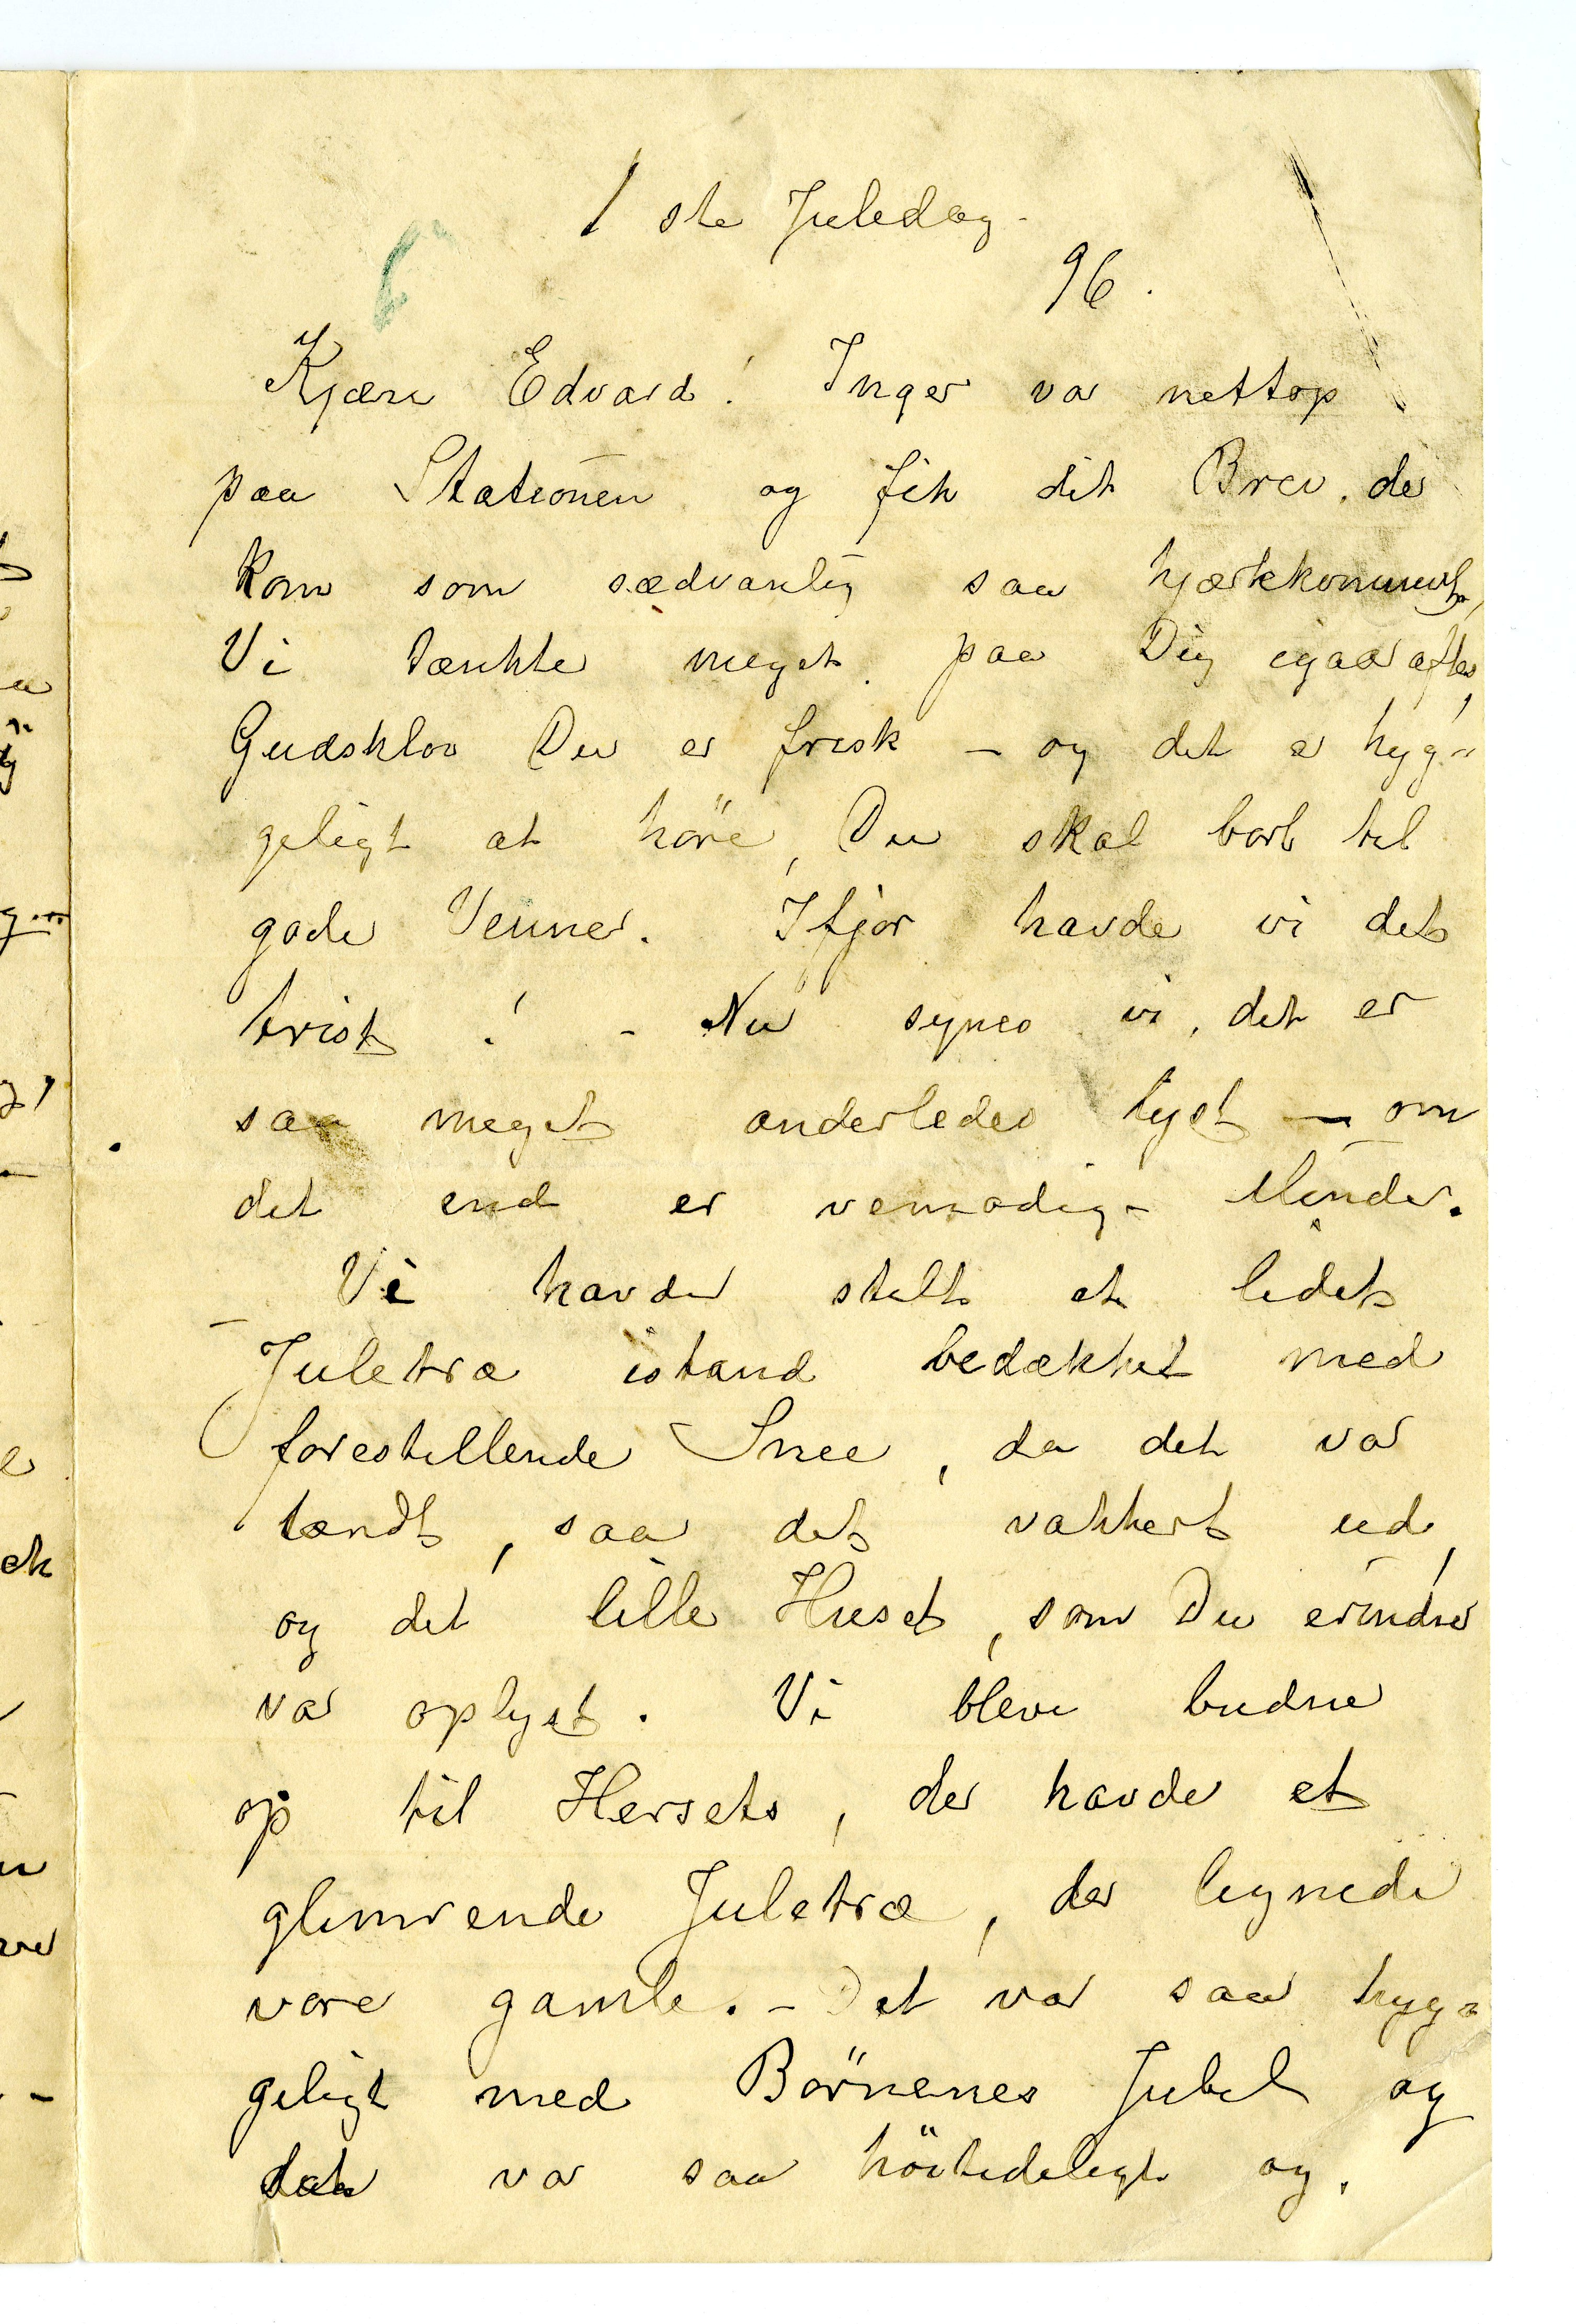 1 ste Juledag
96.
Kjære Edvard! Inger var nettop
paa Stationen og fik dit Brev. der
kom som sædvanlig saa hjærtekomment,
Vi tænkte meget paa Dig igaaraftes,
Gudsklov Du er frisk – og det er hyg-
geligt at höre, Du skal bort til
gode Venner. Ifjor havde vi det
trist! – Nu synes vi, det er
saa meget anderledes lyst – om
det end er vemodig- Minder.
Vi havde stelt et lidet
Juletræ istand bedækket med
forestillende Snee, da det var
tændt, saa det vakkert ud,
og det lille Huset, som Du erindrer
var oplyst. Vi bleve budne
op til Hersets, der havde et
glimrende Juletræ, der lignede
vore gamle. – Det var saa hyg-
geligt med Börnenes Jubel og
det var saa höitideligt og.